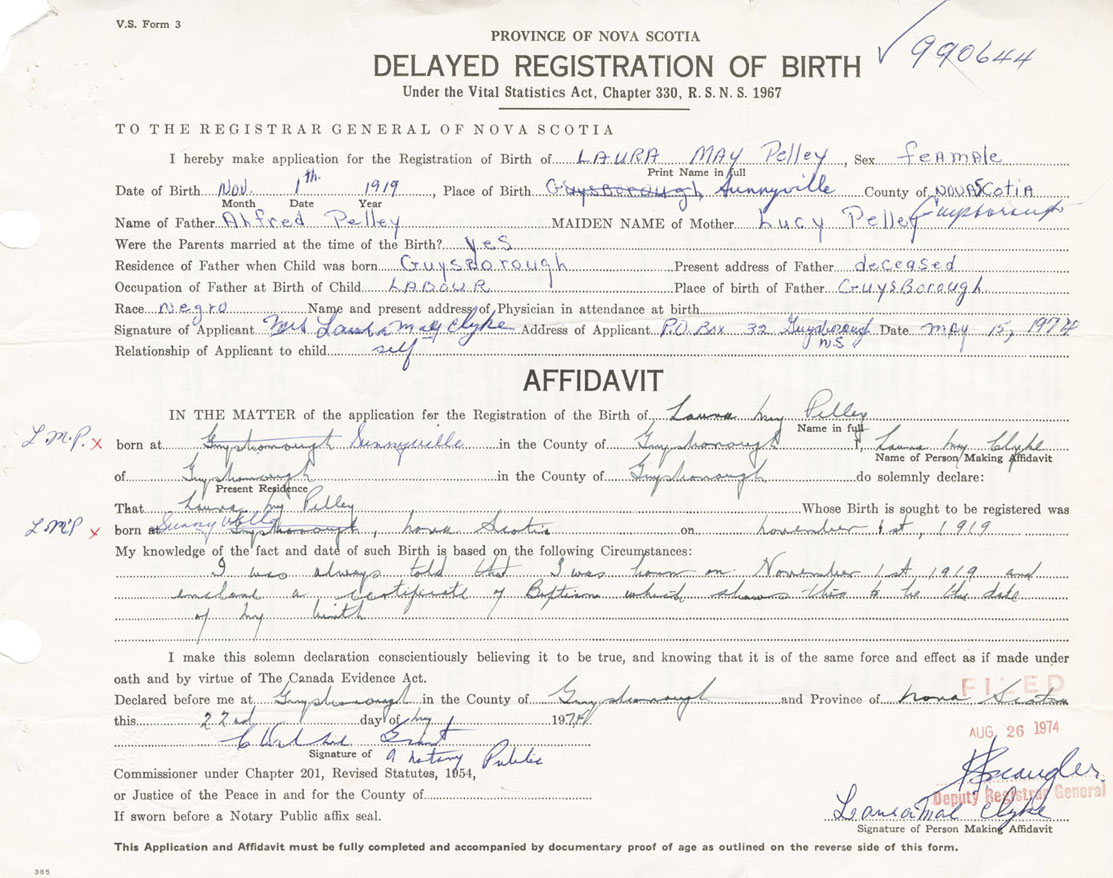 V.S. Form 3
990644
PROVINCE OF NOVA SCOTIA
DELAYED REGISTRATION OF BIRTH
Under the Vital Statistics Act, Chapter 330, R.S.N.S. 1967
TO THE REGISTRAR GENERAL OF NOVA SCOTIA
I hereby make application for the Registration of Birth of LAURA MAY Pelley, Sex feamale
Print Name in full
Date of Birth Nov. 1th 1919, Place of Birth Guysborough, Sunnyville County of NOVA SCOTIA
Month Date Year
Guysborough
Name of Father Ahfred Pelley MAIDEN NAME of Mother Lucy Pelley
Were the Parents married at the time of the Birth? yes
Residence of Father when Child was born GuysBorough Present address of Father deceased
Occupation of Father at Birth of Child LABOUR Place of birth of Father GuysBorough
Race Negro Name and present address of Physician in attendance at birth
Signature of Applicant Mrs Laura May Clyke Address of Applicant P.O. Box 32 Guysborough N.S. Date MAY 15, 1974
Relationship of Applicant to child self
AFFIDAVIT
IN THE MATTER of the application for the Registration of the Birth of Laura my Pelley
Name in full
L.M.P. x born at Guysborough Sunnyville in the County of Guysborough I, Laura my Clyke
Name of Person Making Affidavit
of Guysborough in the County of Guysborough do solemnly declare:
Present Residence
That Laura my Pelley Whose Birth is sought to be registered was
L.M.P x born at Sunnyville Guysborough, nova Scotia on november 1st, 1919
My knowledge of the fact and date of such Birth is based on the following Circumstances:
I was always told that I was born on November 1st 1919 and
enclose a certificate of Baptism which shows this to be the date
of my birth
I make this solemn declaration conscientiously believing it to be true, and knowing that it is of the same force and effect as if made under
oath and by virtue of The Canada Evidence Act.
Declared before me at Guysborough in the County of Guysborough and Province of nova Scotia
FILED
this 22nd day of my 1974
AUG. 26 1974
Grant
Signature of a notary Public
Commissioner under Chapter 201, Revised Statutes, 1954,
Deputy Registrar General
or Justice of the Peace in and for the County of
Laura Mae Clyke
If sworn before a Notary Public affix seal.
Signature of Person Making Affidavit
This Application and Affidavit must be fully completed and accompanied by documentary proof of age as outlined on the reverse side of this form.
385